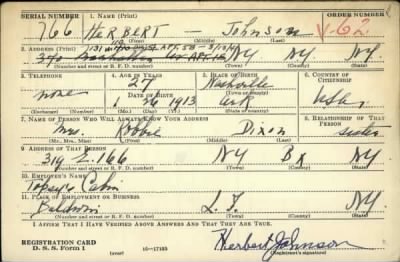 SERIAL NUMBER 1. NAME (Print) ORDER NUMBER
766 HERBERT — JOHNSON
(First) (Middle) (Last)
2. ADDRESS (Print)
NY NY NY.
(Number and street or R. F. D. number) (Town) (County) (State)
3. TELEPHONE 4. AGE IN YEARS 5. PLACE OF BIRTH 6. COUNTRY OF CITIZENSHIP
none 27 Nashville
DATE OF BIRTH (Town or county)
1 26 1913 Ark. USA.
(Exchange) (Number) (Mo.) (Day) (Yr.) (State or country)
7. NAME OF PERSON WHO WILL ALWAYS KNOW YOUR ADDRESS 8. RELATIONSHIP OF THAT PERSON
Mrs. Robbie Dixon sister
(Mr., Mrs., Miss) (First) (Middle) (Last)
9. ADDRESS OF THAT PERSON
319 E. 166 NY Bx NY.
(Number and street or R. F. D. number) (Town) (County) (State)
10. EMPLOYER'S NAME
Topsy's Cabin
11. PLACE OF EMPLOYMENT OR BUSINESS
Baldwin L.I. NY.
(Number and street or R. F. D. number) (Town) (County) (State)
I AFFIRM THAT I HAVE VERIFIED ABOVE ANSWERS AND THAT THEY ARE TRUE.
REGISTRATION CARD
D. S. S. Form 1 (over) 16—17105 Herbert Johnson
(Registrant's signature)